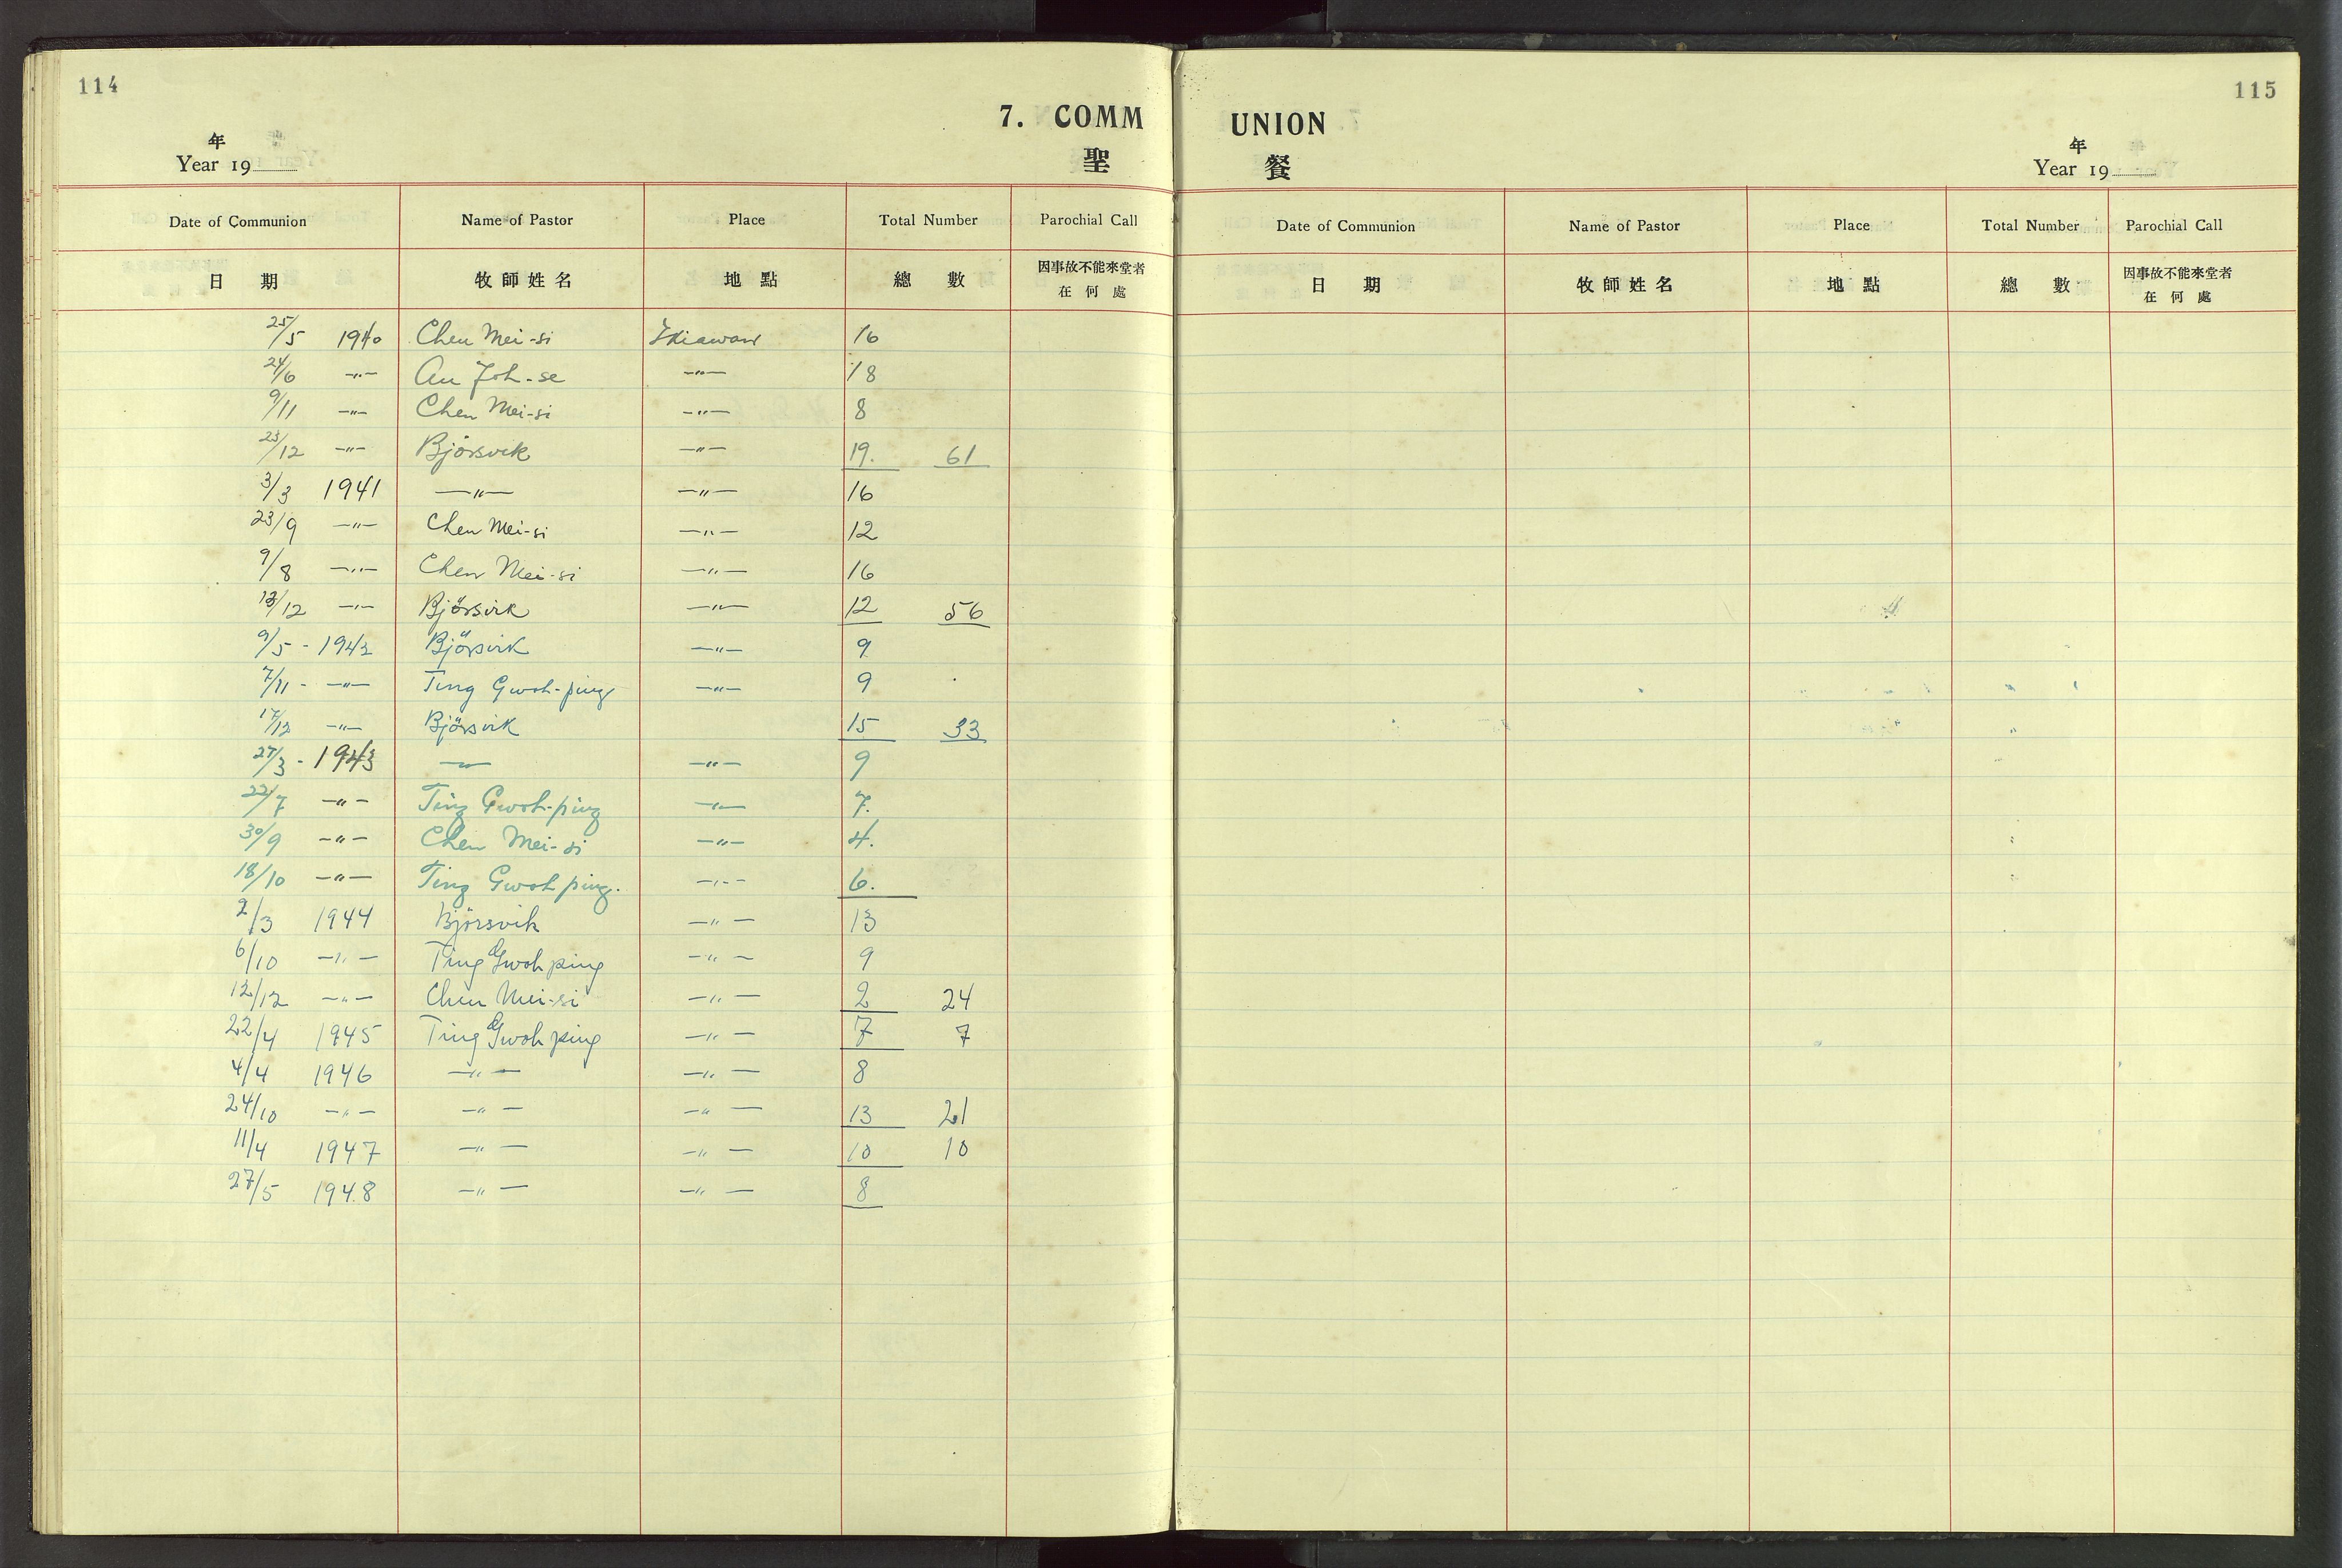 114
7. COMM
年
Year 19
聖
Date of Communion Name of Pastor Place Total Number Parochial Call
日 期 牧師姓名 地點 總 數 因事故不能來堂者
在何處
25/5 1940 Chen Mei-si 16
24/6 —〃— An Joh-se —〃— 18
9/11 —〃— Chen Mei-si —〃— 8
23/12 —〃— Björsvik —〃— 19. 61
3/3 1941 —〃— —〃— 16
23/9 —〃— Chen Mei-si —〃— 12
9/8 —〃— Chen Mei-si —〃— 16
/12 —〃— Björsvik —〃— 12 56
9/5 - 1942 Björsvik —〃— 9
7/11 - —〃— Ting Gwoh-ping —〃— 9
17/12 —〃— Björsvik 15 33
27/3 - 1943 —〃— —〃— 9
22/7 —〃— Ting Gwoh-ping —〃— 7.
30/9 —〃— Chen Mei-si —〃— 4.
18/10 —〃— Ting Gwoh ping. —〃— 6.
2/3 1944 Björsvik —〃— 13
6/10 —〃— Ting Gwoh ping —〃— 9
12/12 —〃— Chen Mei-si —〃— 2 24
22/4 1945 Ting Gwoh ping —〃— 7 7
4/4 1946 —〃— —〃— 8
24/10 —〃— —〃— —〃— 13 21
11/4 1947 —〃— —〃— 10 10
27/5 1948 —〃— —〃— 8
115
UNION
餐
年
Year 19
Date of Communion Name of Pastor Place Total Number Parochial Call
日 期 牧師姓名 地點 總 數 因事故不能來堂者
在何處